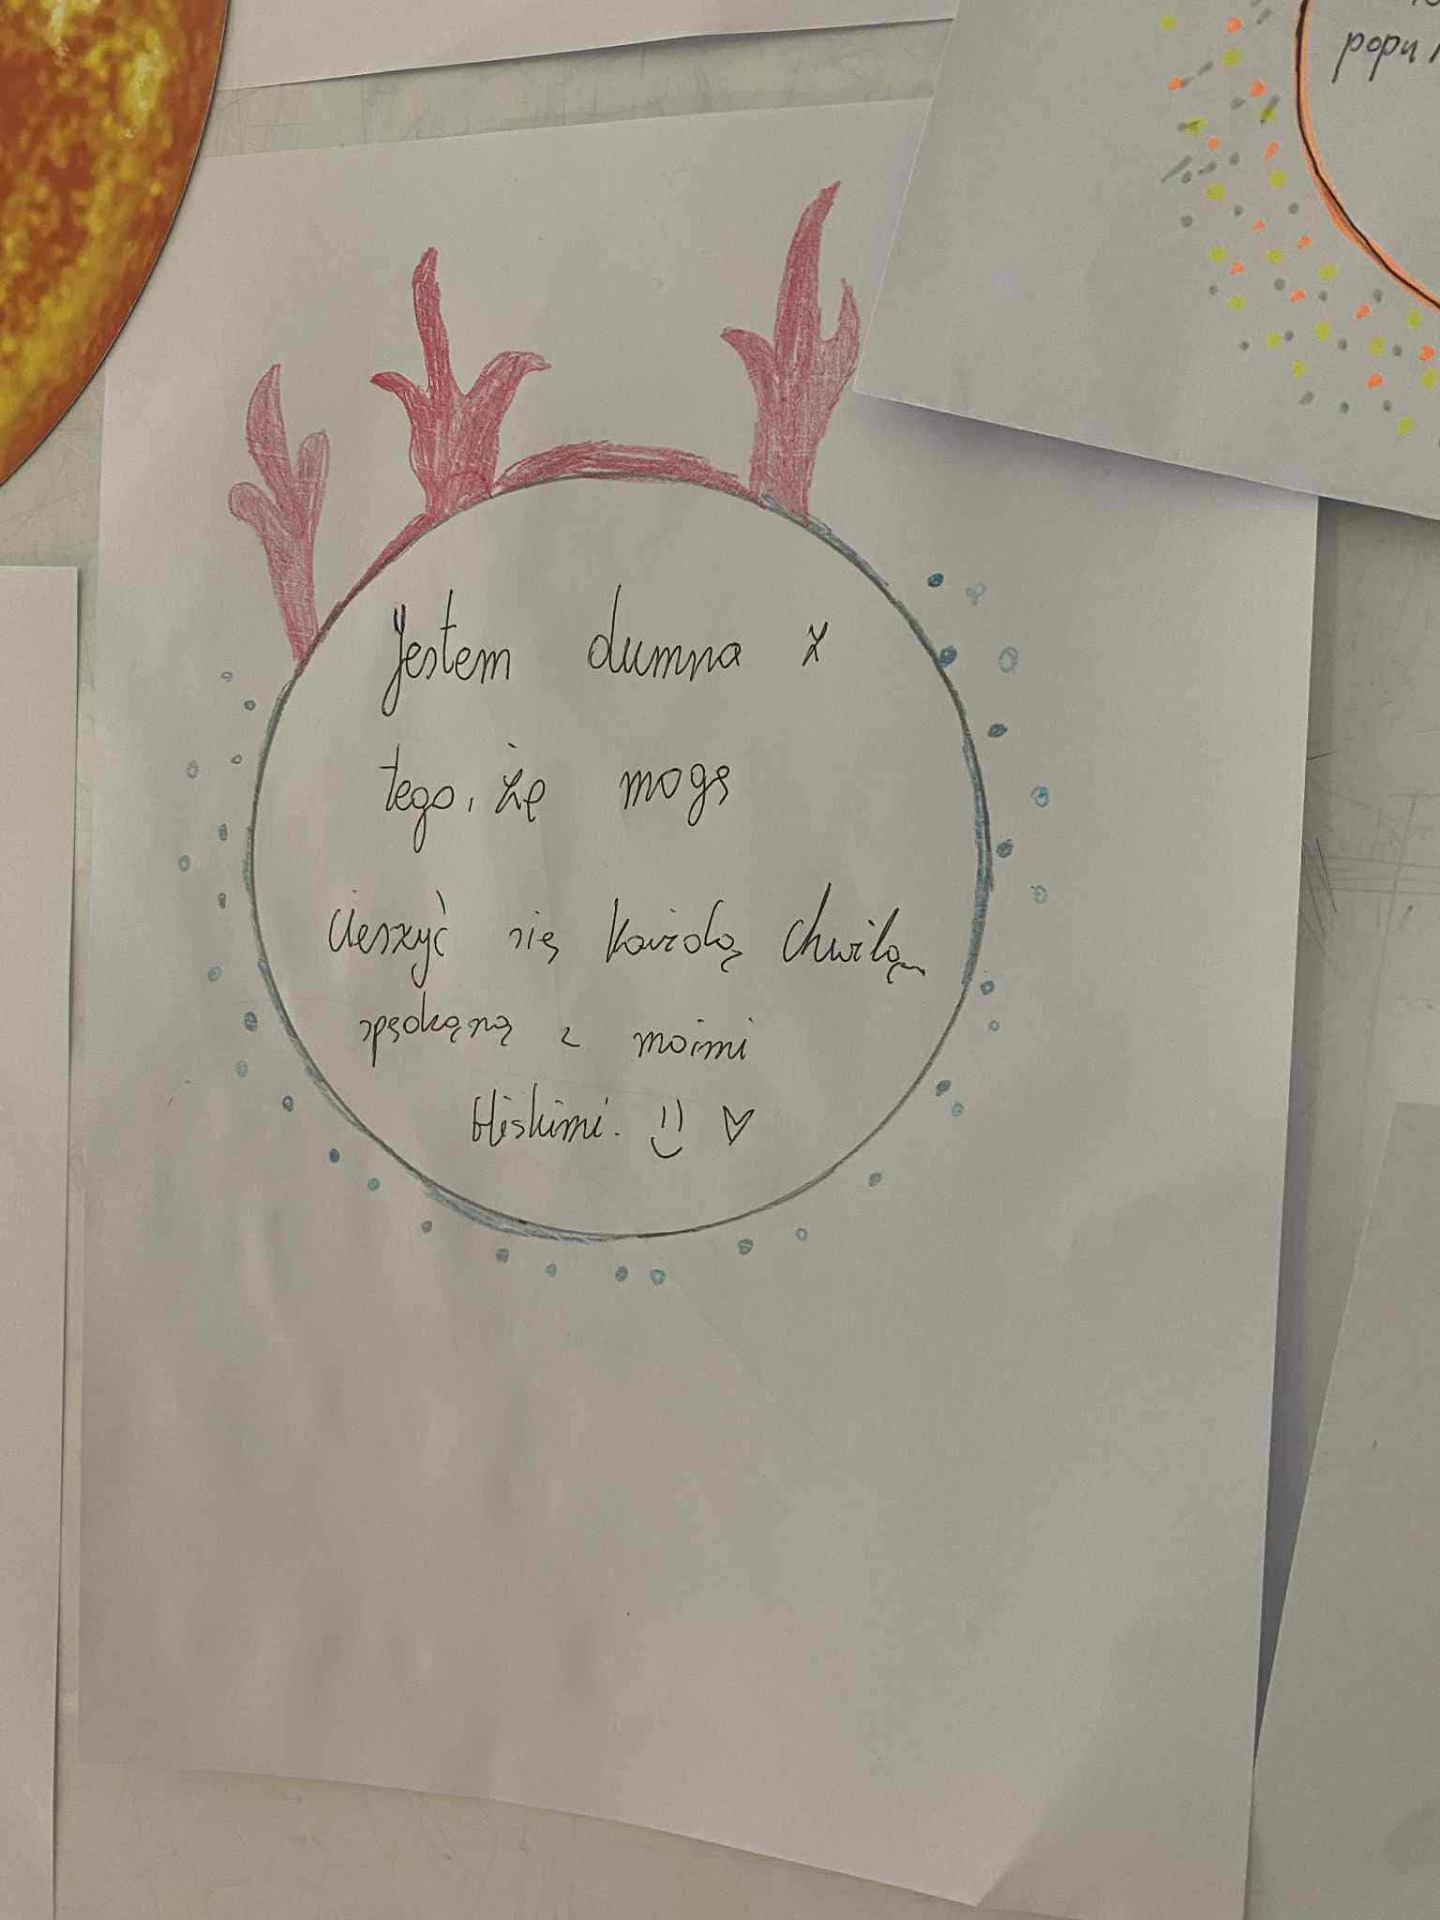 popu
Jestem dumna z
tego, żę mogę
cieszyć się każdą chwilą
spędzoną z moimi
bliskimi. :) ♡